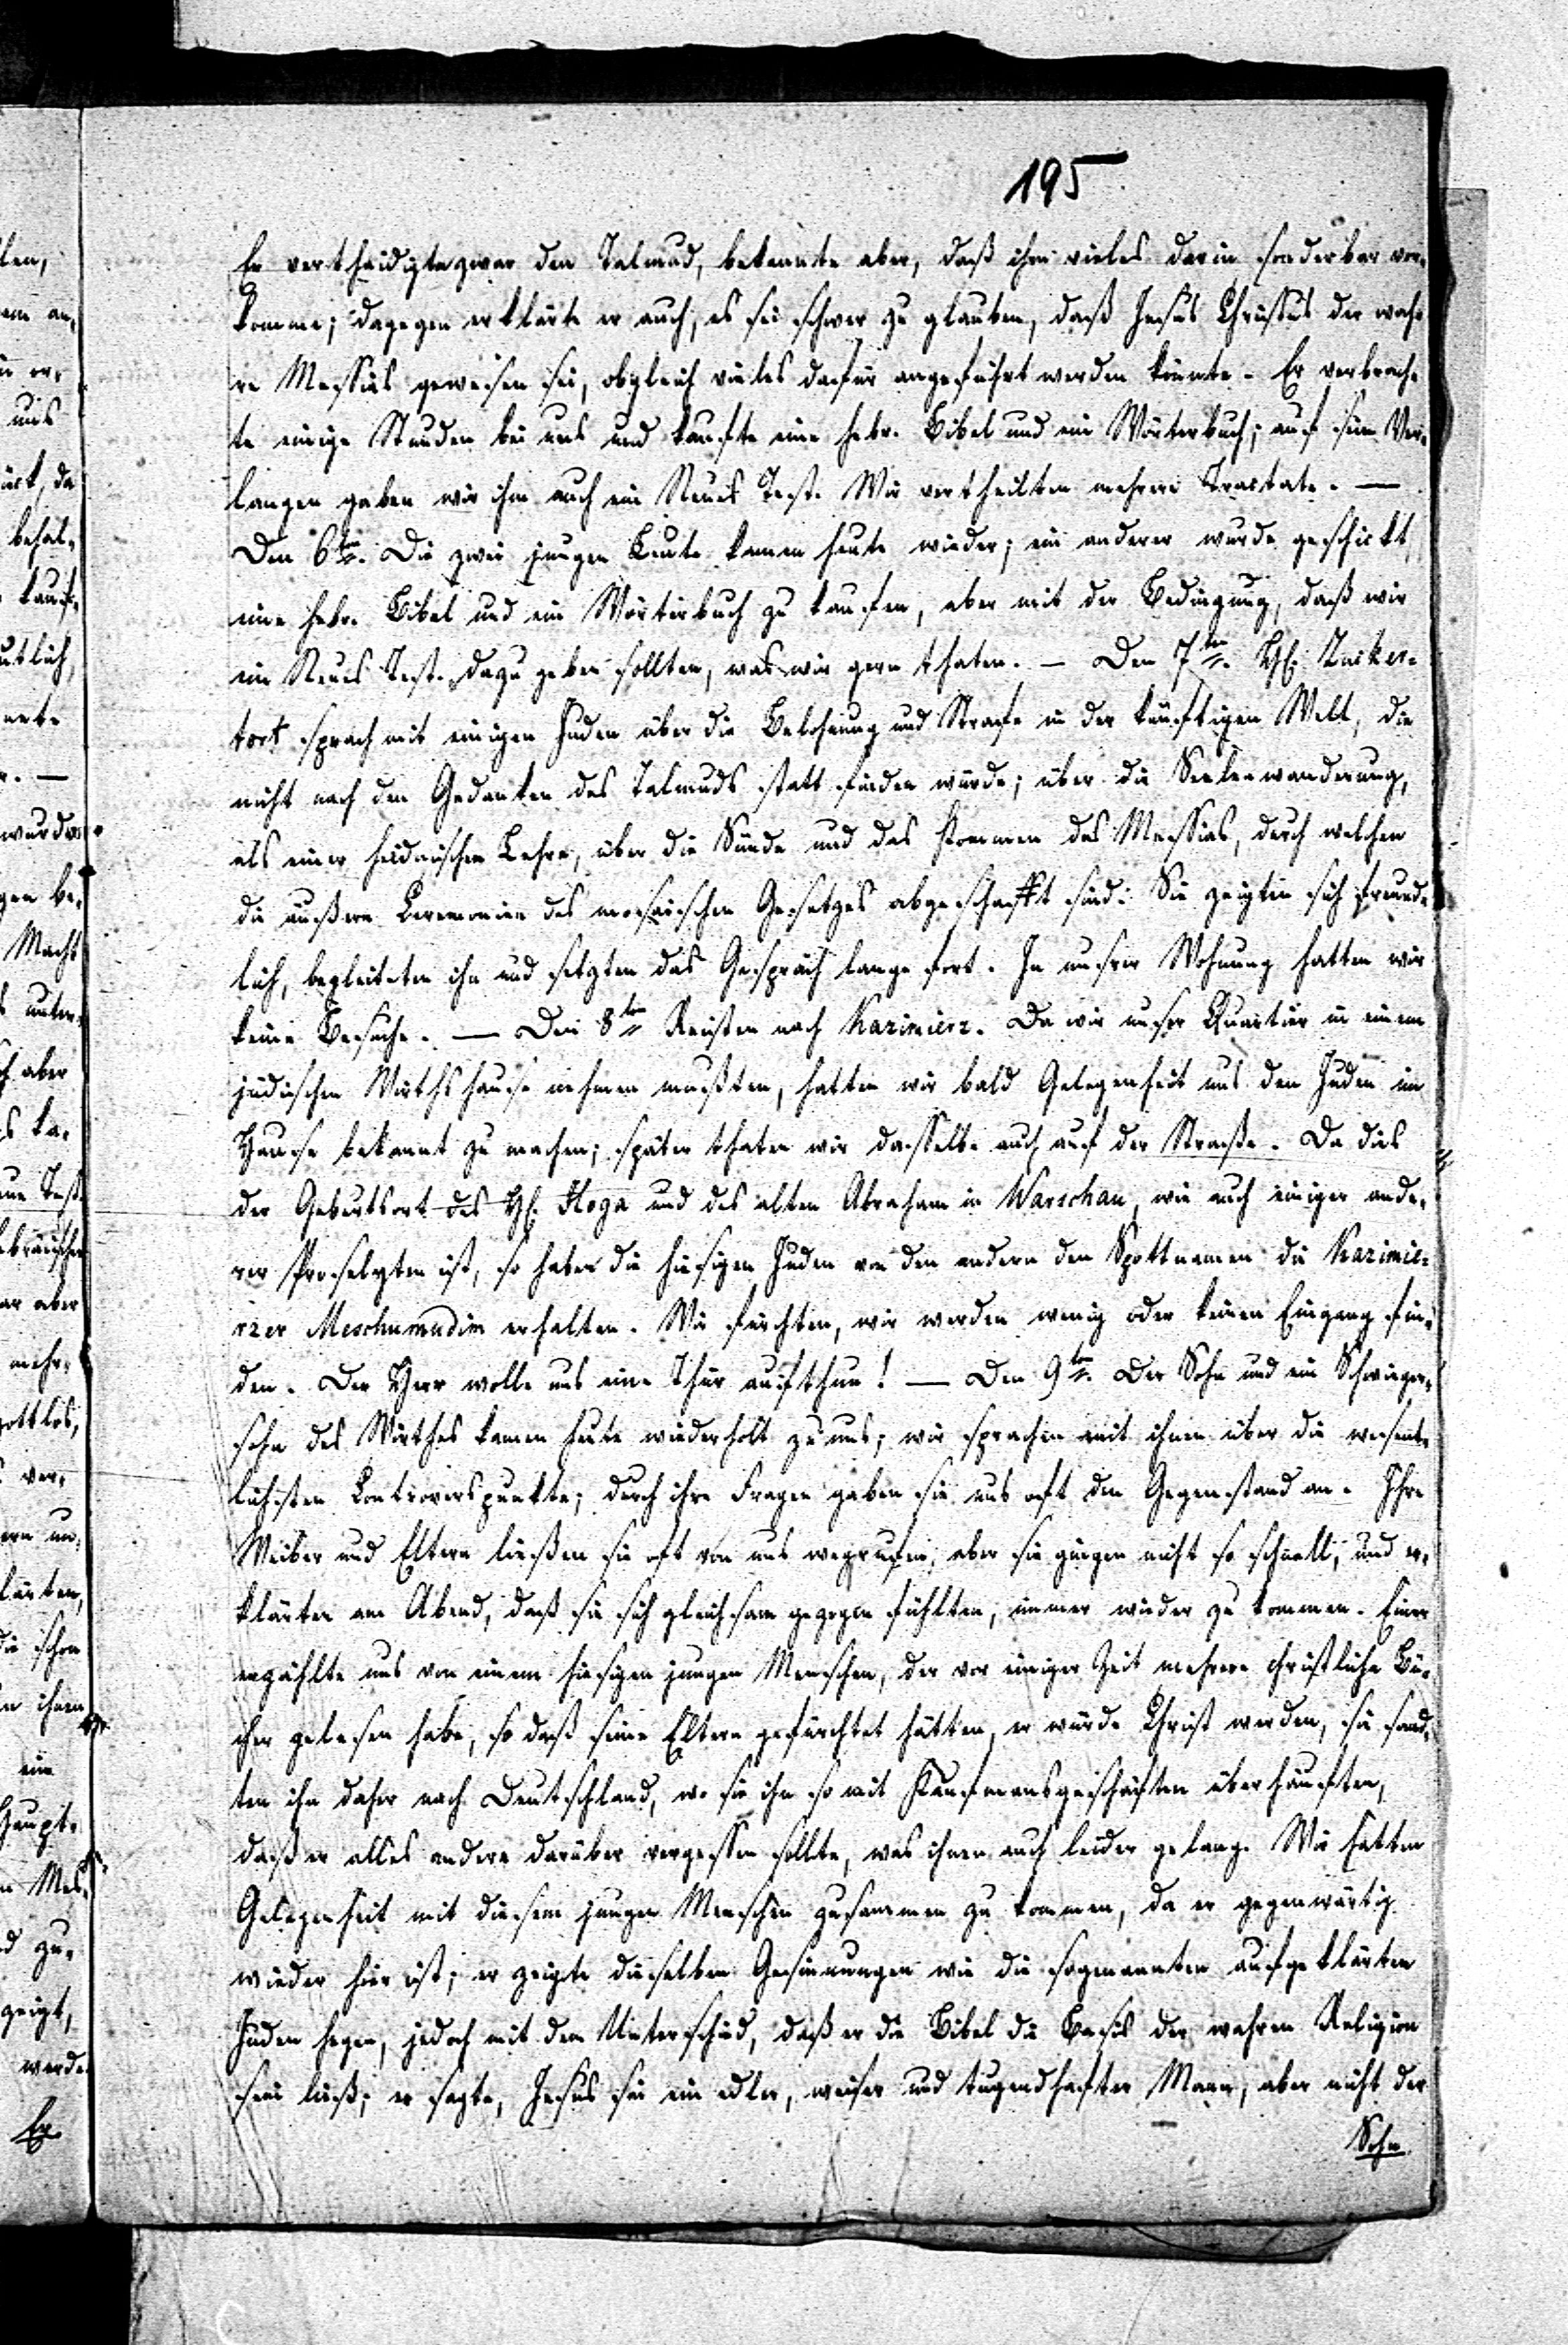 195
Er vertheidigte zwar den Talmud, bekannte aber, daß ihm vieles darin sonderbar vor-
komme; dagegen erklärte er auch, es sei schwer zu glauben, daß Jesus Christus der wah-
re Messias gewesen sei, obgleich vieles dafür angeführt werden könnte. Er verbrach-
te einige Stunden bei uns und kaufte eine hebr. Bibel und ein Wörterbuch; auf sein Ver-
langen gaben wir ihm auch ein Neues Test. Wir vertheilten mehrere Tractate. —
Den 6ten. Die zwei jungen Leute kamen heute wieder; ein anderer wurde geschickt
eine hebr. Bibel und ein Wörterbuch zu kaufen, aber mit der Bedingung, daß wir
ein Neues Test. dazu geben sollten, was wir gern thaten. — Den 7ten. H. Zucker-
tort sprach mit einigen Juden über die Belohnung und Strafe in der künftigen Welt, die
nicht nach den Gedanken des Talmuds statt finden würde; über die Seelenwanderung,
als einer heidnischen Lehre, über die Sünde und das Kommen des Messias, durch welchen
die äußern Ceremonien des mosaischen Gesetzes abgeschafft sind. Sie zeigten sich freund-
lich, begleiteten ihn und setzten das Gespräch lange fort. In unsrer Wohnung hatten wir
keine Besuche. — Den 8ten Reisten nach Kazimierz. Da wir unser Quartier in einem
jüdischen Wirthshause nehmen mußten, hatten wir bald Gelegenheit uns den Juden im
Hause bekannt zu machen; später thaten wir dasselbe auch auf der Straße. Da dies
der Geburtsort des H. Hoga und des alten Abraham in Warschau, wie auch einiger ande-
rer Proselyten ist, so haben die hiesigen Juden von den andern den Spottnamen die Kazimie-
rzer Meschumudim erhalten. Wir fürchten, wir werden wenig oder keinen Eingang fin-
den. Der Herr wolle uns eine Thür aufthun! — Den 9ten. Der Sohn und ein Schwieger-
sohn des Wirthes kamen heute wiederholt zu uns; wir sprachen mit ihnen über die wesent-
lichsten Controverspunkte; durch ihre Fragen gaben sie uns oft den Gegenstand an. Ihre
Weiber und Eltern ließen sie oft von uns wegrufen, aber sie gingen nicht so schnell, und er-
klärten am Abend, daß sie sich gleichsam gezogen fühlten, immer wieder zu kommen. Einer
erzählte uns von einem hiesigen jungen Menschen, der vor einiger Zeit mehrere christliche Bü-
cher gelesen habe, so daß seine Eltern gefürchtet hätten, er würde Christ werden, sie sand-
ten ihn daher nach Deutschland, wo sie ihn so mit Kaufmansgeschäften überhäuften,
daß er alles andere darüber vergessen sollte, was ihnen auch leider gelang. Wir hatten
Gelegenheit mit diesem jungen Menschen zusammen zu kommen, da er gegenwärtig
wieder hier ist; er zeigte dieselben Gesinnungen wie die sogenannten aufgeklärten
Juden hegen, jedoch mit dem Unterschied, daß er die Bibel die Basis der wahren Religion
sein ließ; er sagte, Jesus sei ein edler, weiser und tugendhafter Mann, aber nicht der
Sohn